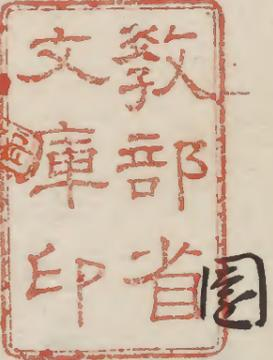 教部省
文庫印
圖